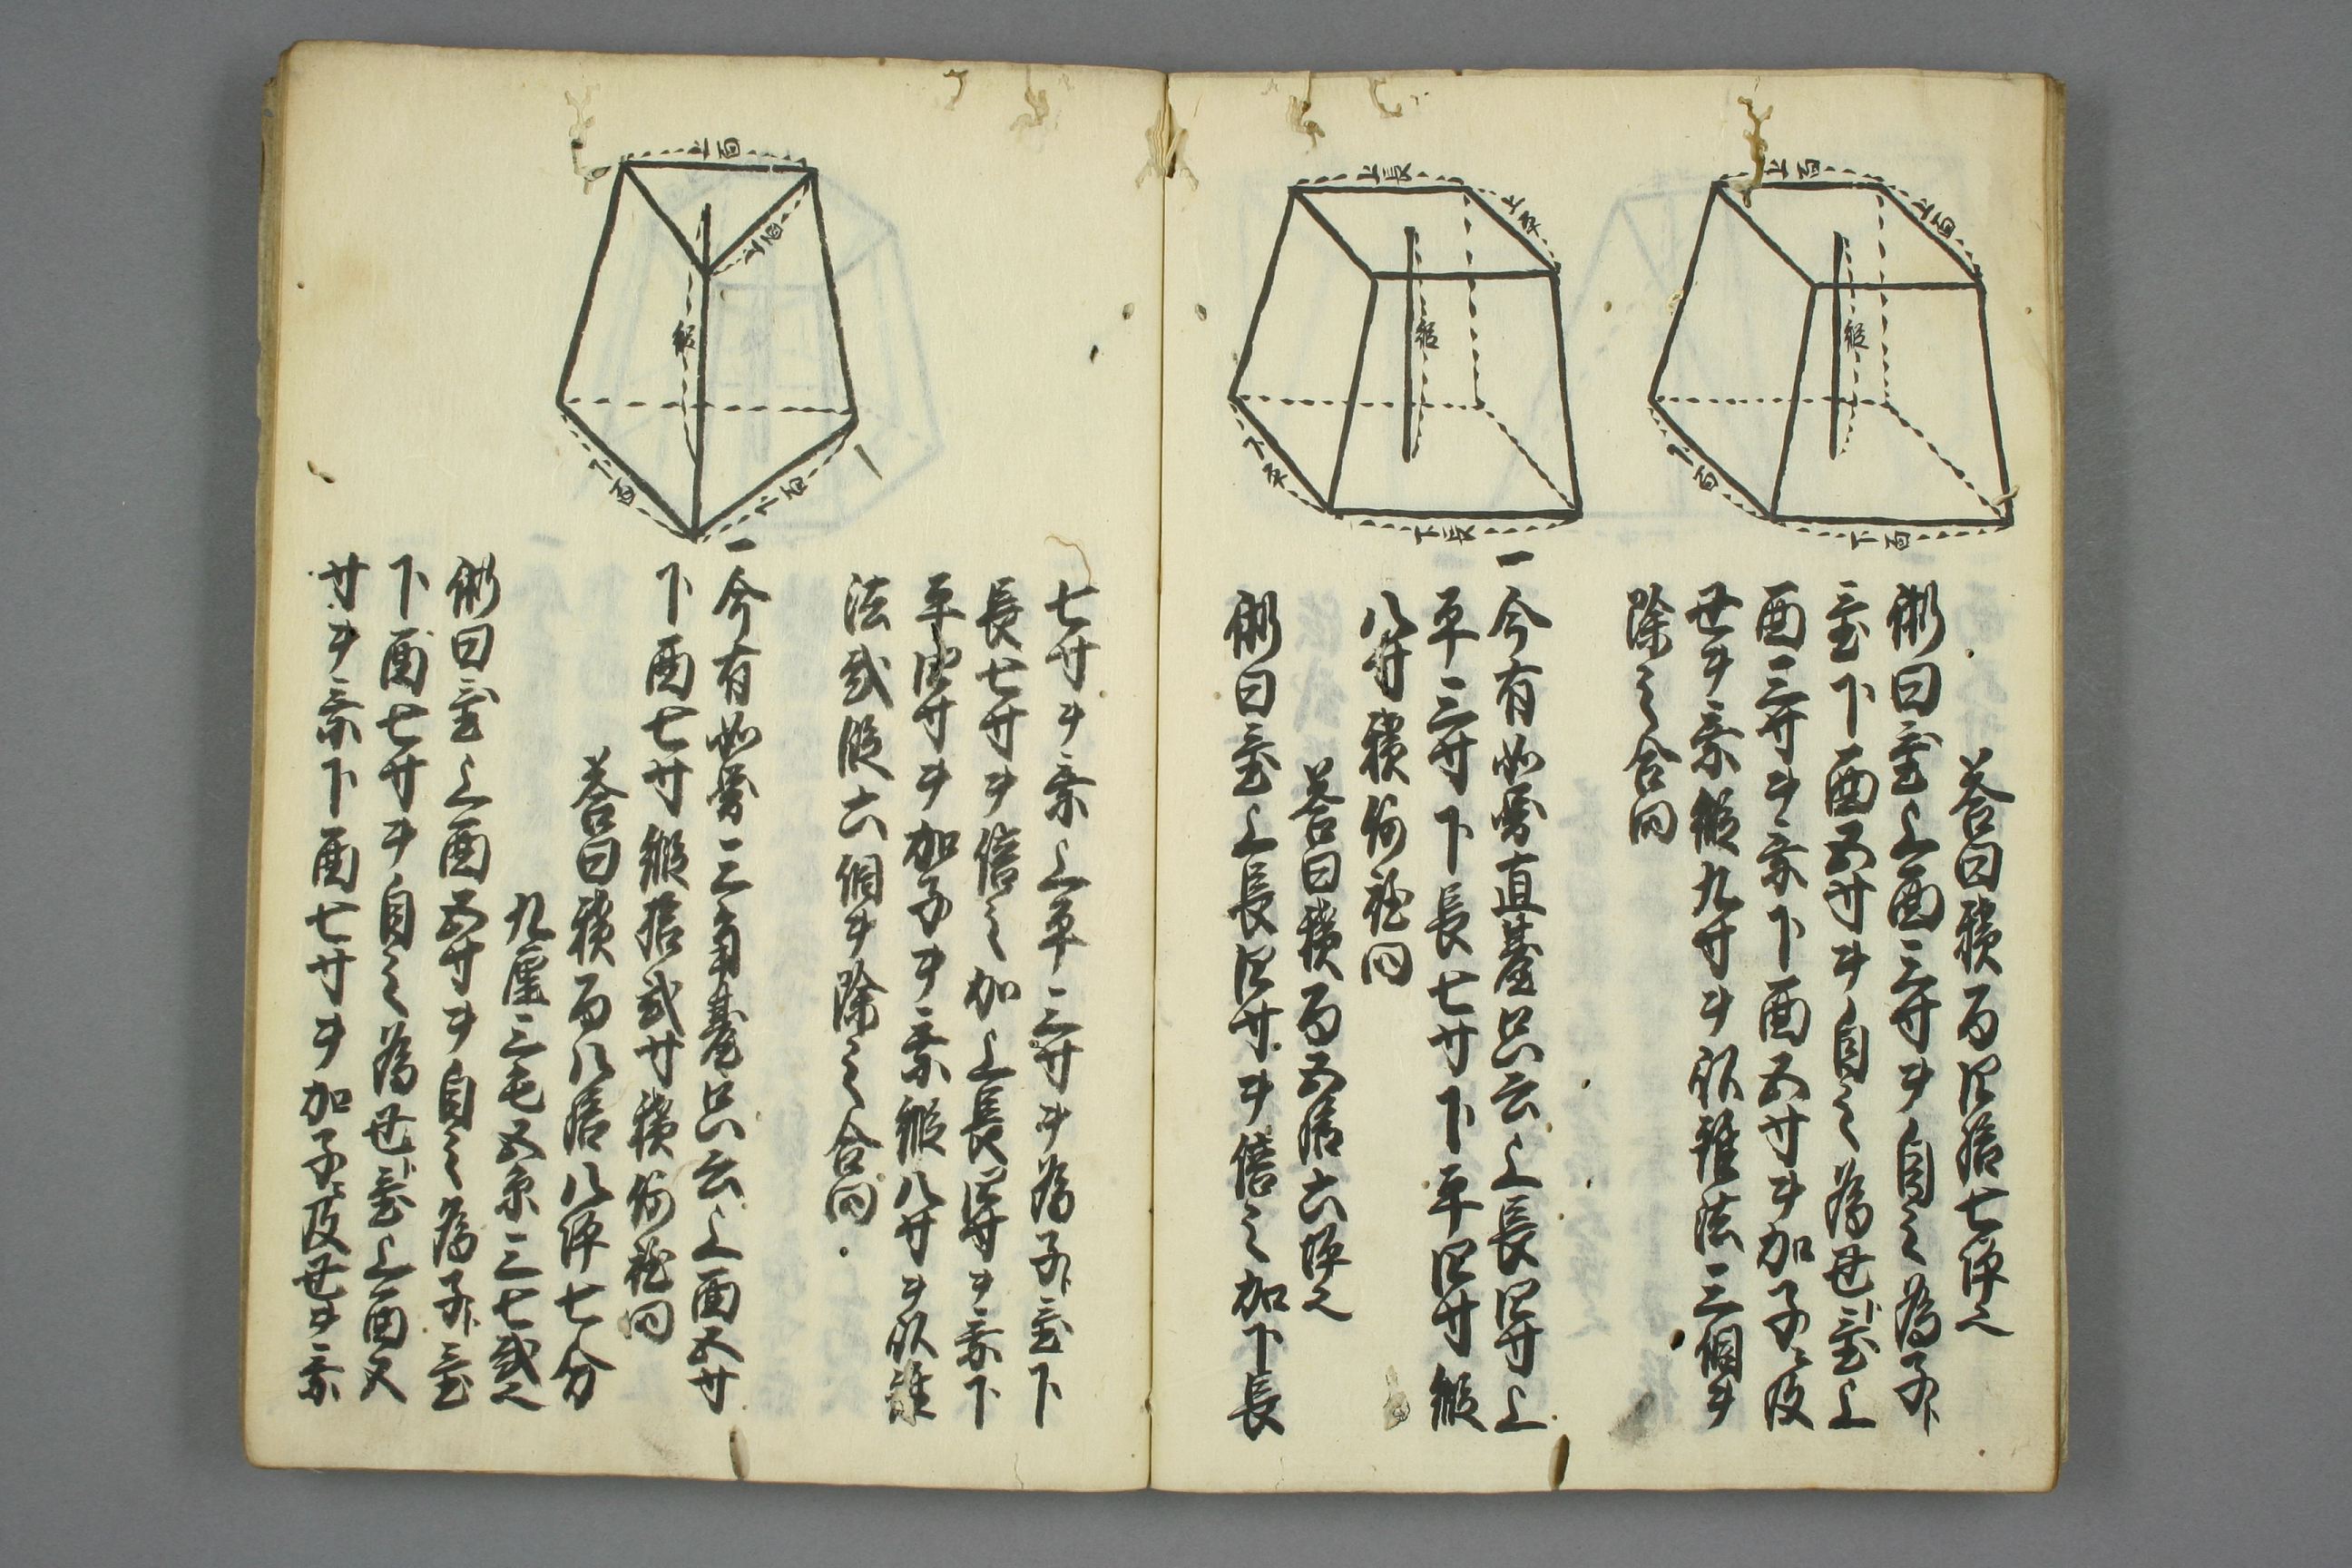 上面
上面
縱
下面
下面
答曰積百四拾七坪也
術曰置上面三寸ヲ自之為子亦
置下面五寸ヲ自之為丑亦置上
面三寸ヲ乗下面五寸ヲ加子ニ及
丑ヲ乗縱九寸ヲ以錐法三個ヲ
除之合問
上長
上平
縱
下平
下長
一今有如圖直臺只云上長四寸上
平三寸下長七寸下平四寸縱
八寸積何程問
答曰積百五拾六坪也
術曰置上長四寸ヲ倍之加下長
七寸ヲ乗上平三寸ヲ為子亦置下
長七寸ヲ倍之加上長四寸ヲ乗下
平四寸ヲ加子ヲ乗縱八寸ヲ以錐
法弐段六個ヲ除之合問
上面
上面
縱
下面
下面
一今有如圖三角臺只云上面五寸
下面七寸縱拾弐寸積何程問
答曰積百八拾八坪七分
九厘三毛五糸三七弐也
術曰置上面五寸ヲ自之為子亦置
下面七寸ヲ自之為丑亦置上面五
寸ヲ乗下面七寸ヲ加子ニ及丑ヲ乗